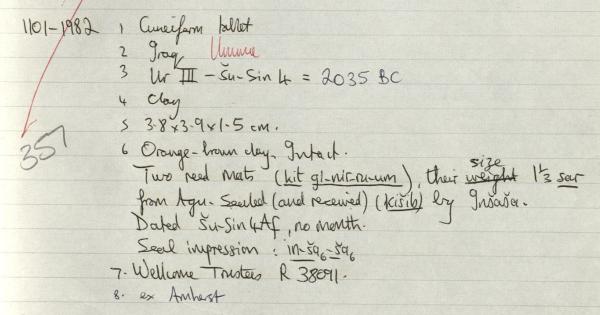 1101-1982 1 Cuneiform tablet
2 Iraq Umma
3 Ur III - Šu-Sin 4 = 2035 BC
4 Clay
357
5 3.8 x 3.9 x 1.5 cm.
6 Orange-brown clay. Intact.
Two reed mats (kit gi-nir-ru-um), their weight size 1⅓ sar
from Agu. Sealed (and received) (kišib) by Insasa.
Dated Šu-Sin 4 Af, no month.
Seal impression: in-ša₆-ša₆
7. Wellcome Trustees R 38091.
8. ex Amherst